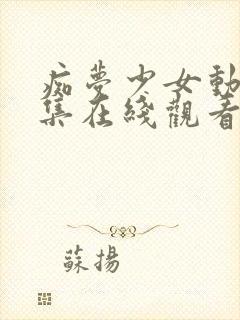 痴夢少女動
集在綫觀看
蘇揚